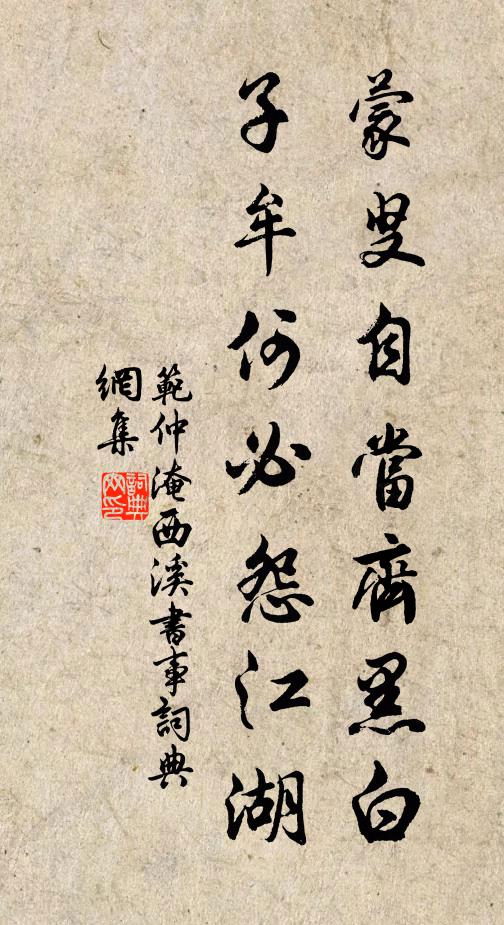 蒙叟自當齊黑白
子牟何必怨江湖
範仲淹西溪書事詞典
網集
詞典網印